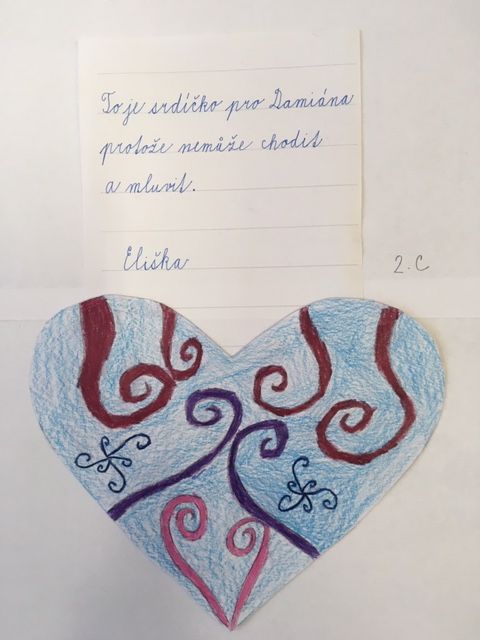 To je srdíčko pro Damiána
protože nemůže chodit
a mluvit.
Eliška
2.C